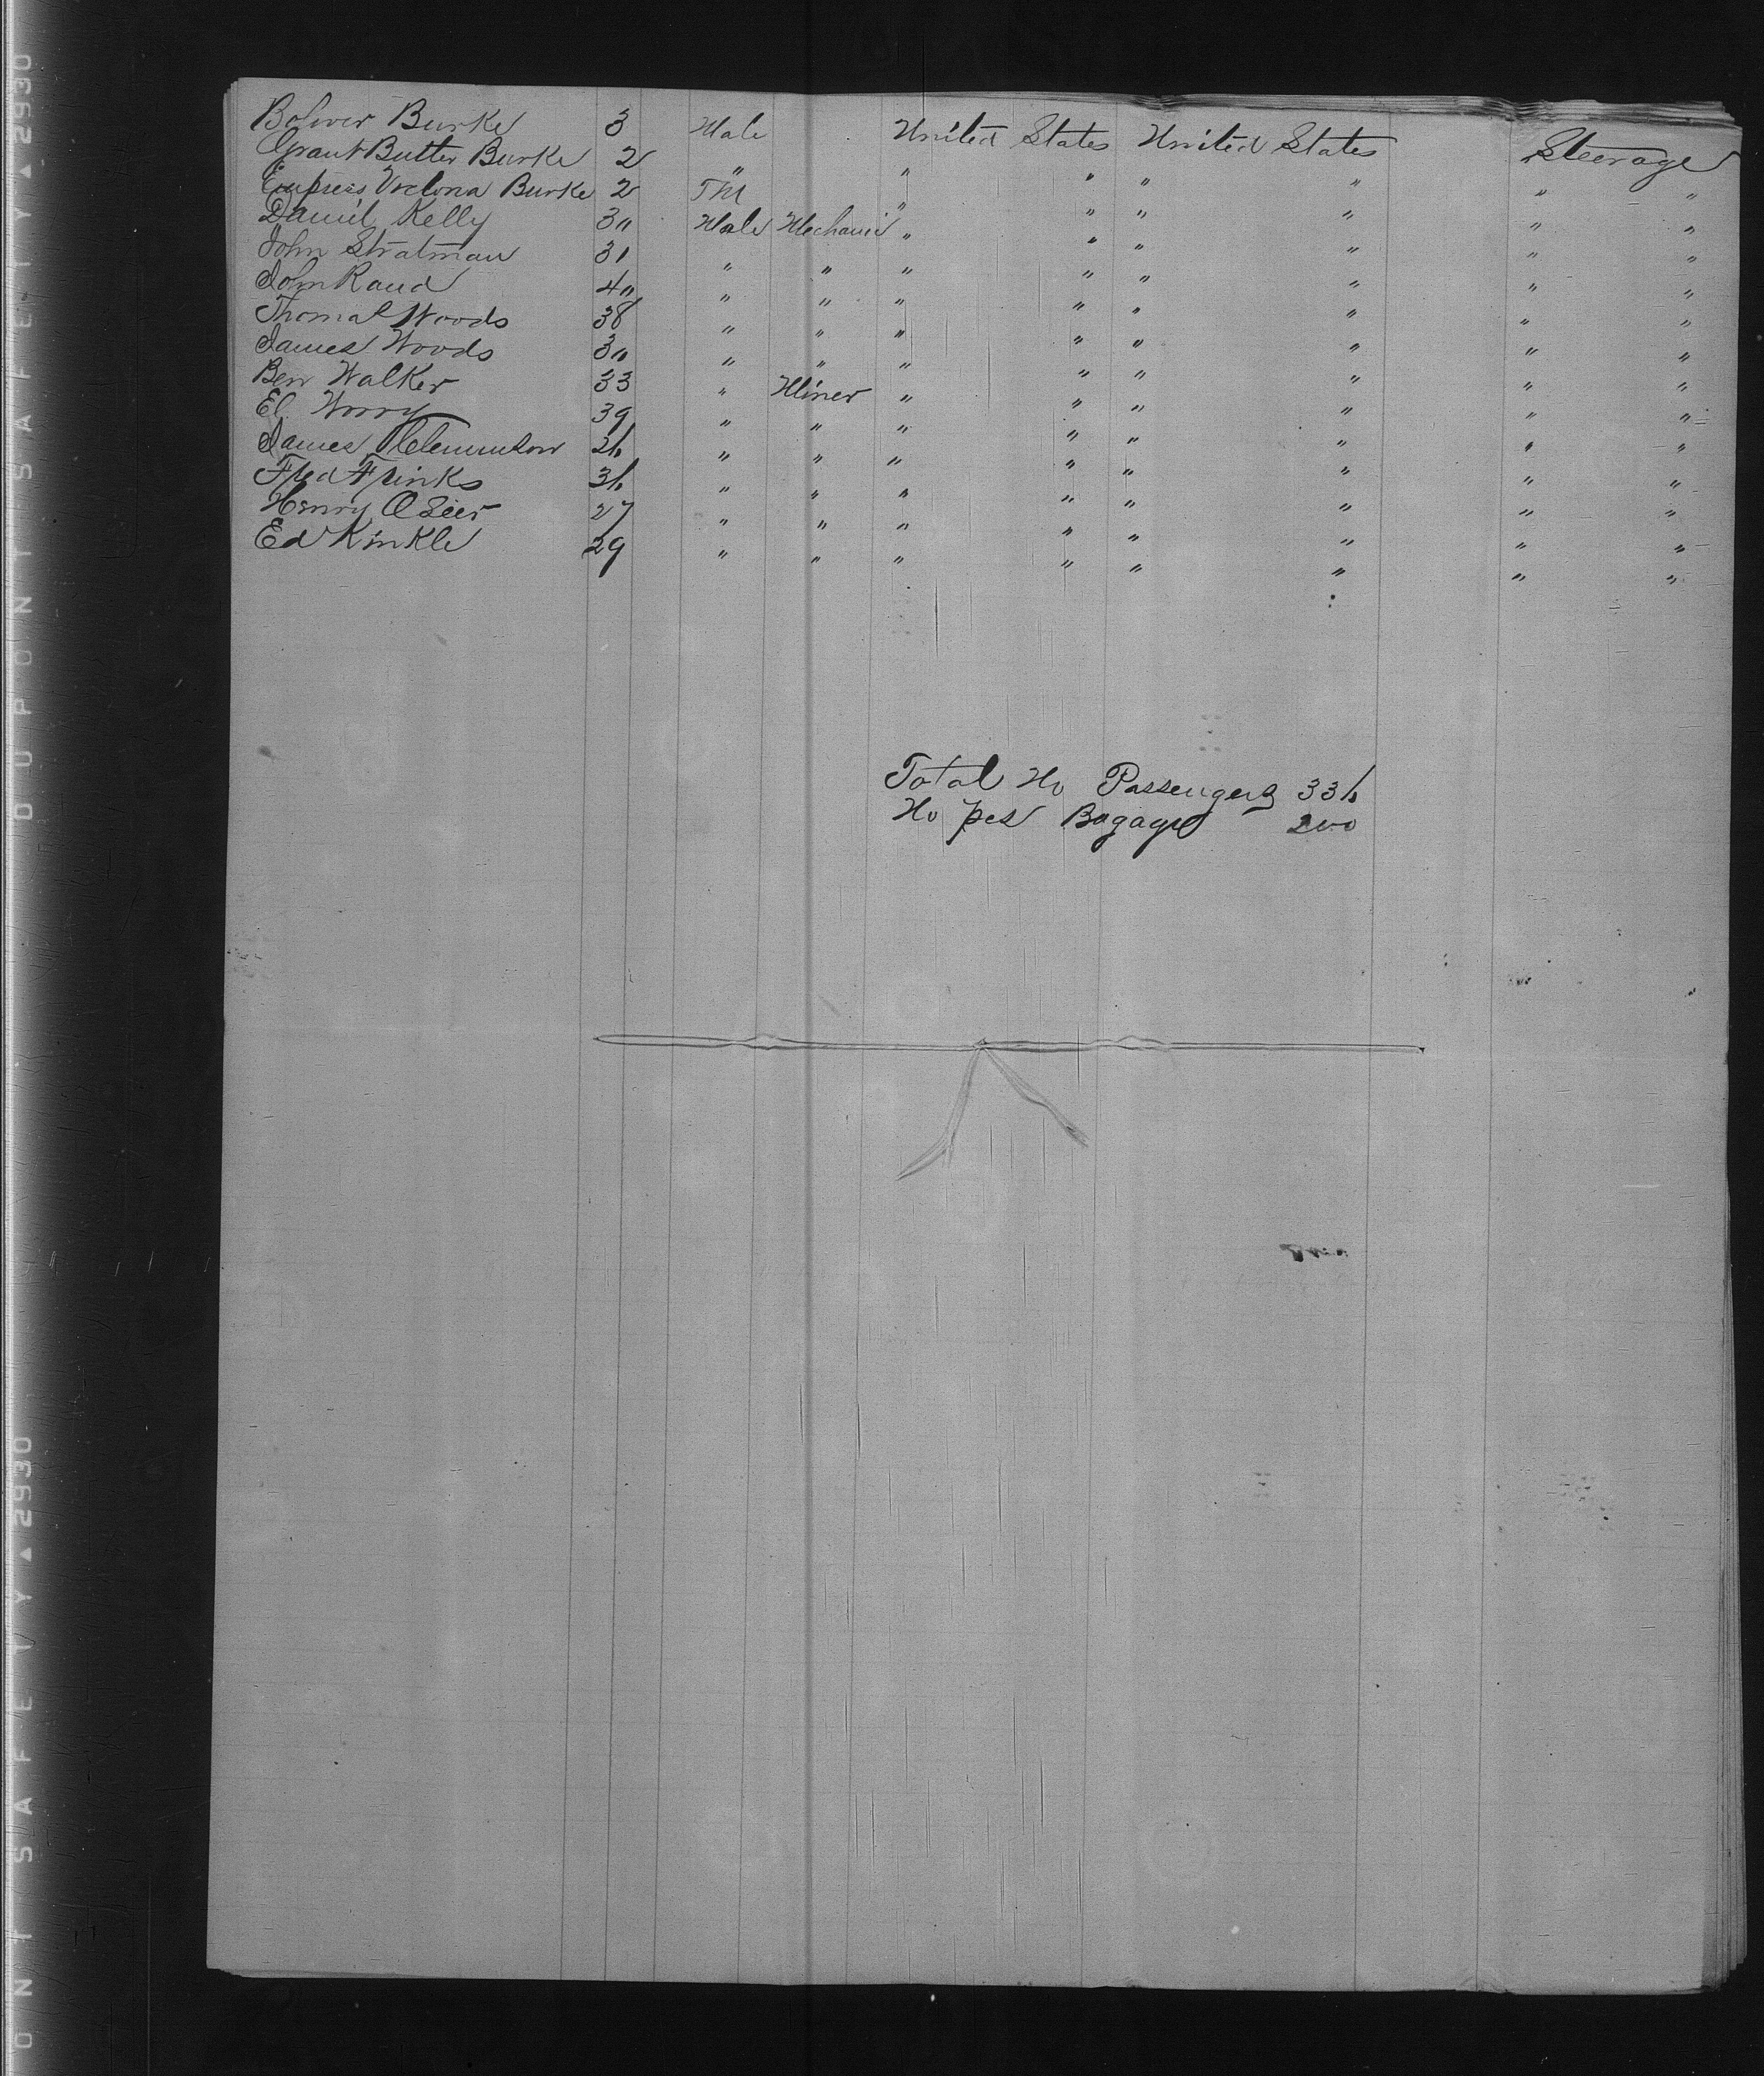 Boliver Burke 3 Male United States United States Steerage
Grant Butler Burke 2 " " " " " " "
Empress Victoria Burke 2 FM " " " " " "
Daniel Kelly 30 Male Mechanic " " " " " "
John Stratman 31 " " " " " " " "
John Rand 40 " " " " " " " "
Thomas Woods 38 " " " " " " " "
James Woods 30 " " " " " " " "
Ben Walker 33 " Miner " " " " " "
El 39 " " " " " " " "
James 26 " " " " " " " "
Fred Frinks 36 " " " " " " " "
Henry Ozier 27 " " " " " " " "
Ed Kinkle 29 " " " " " " " "
Total No Passengers 336
No pcs Bagage 200
DUPONT SAFETY ▲ 2930
ONT SAFETY ▲ 2930